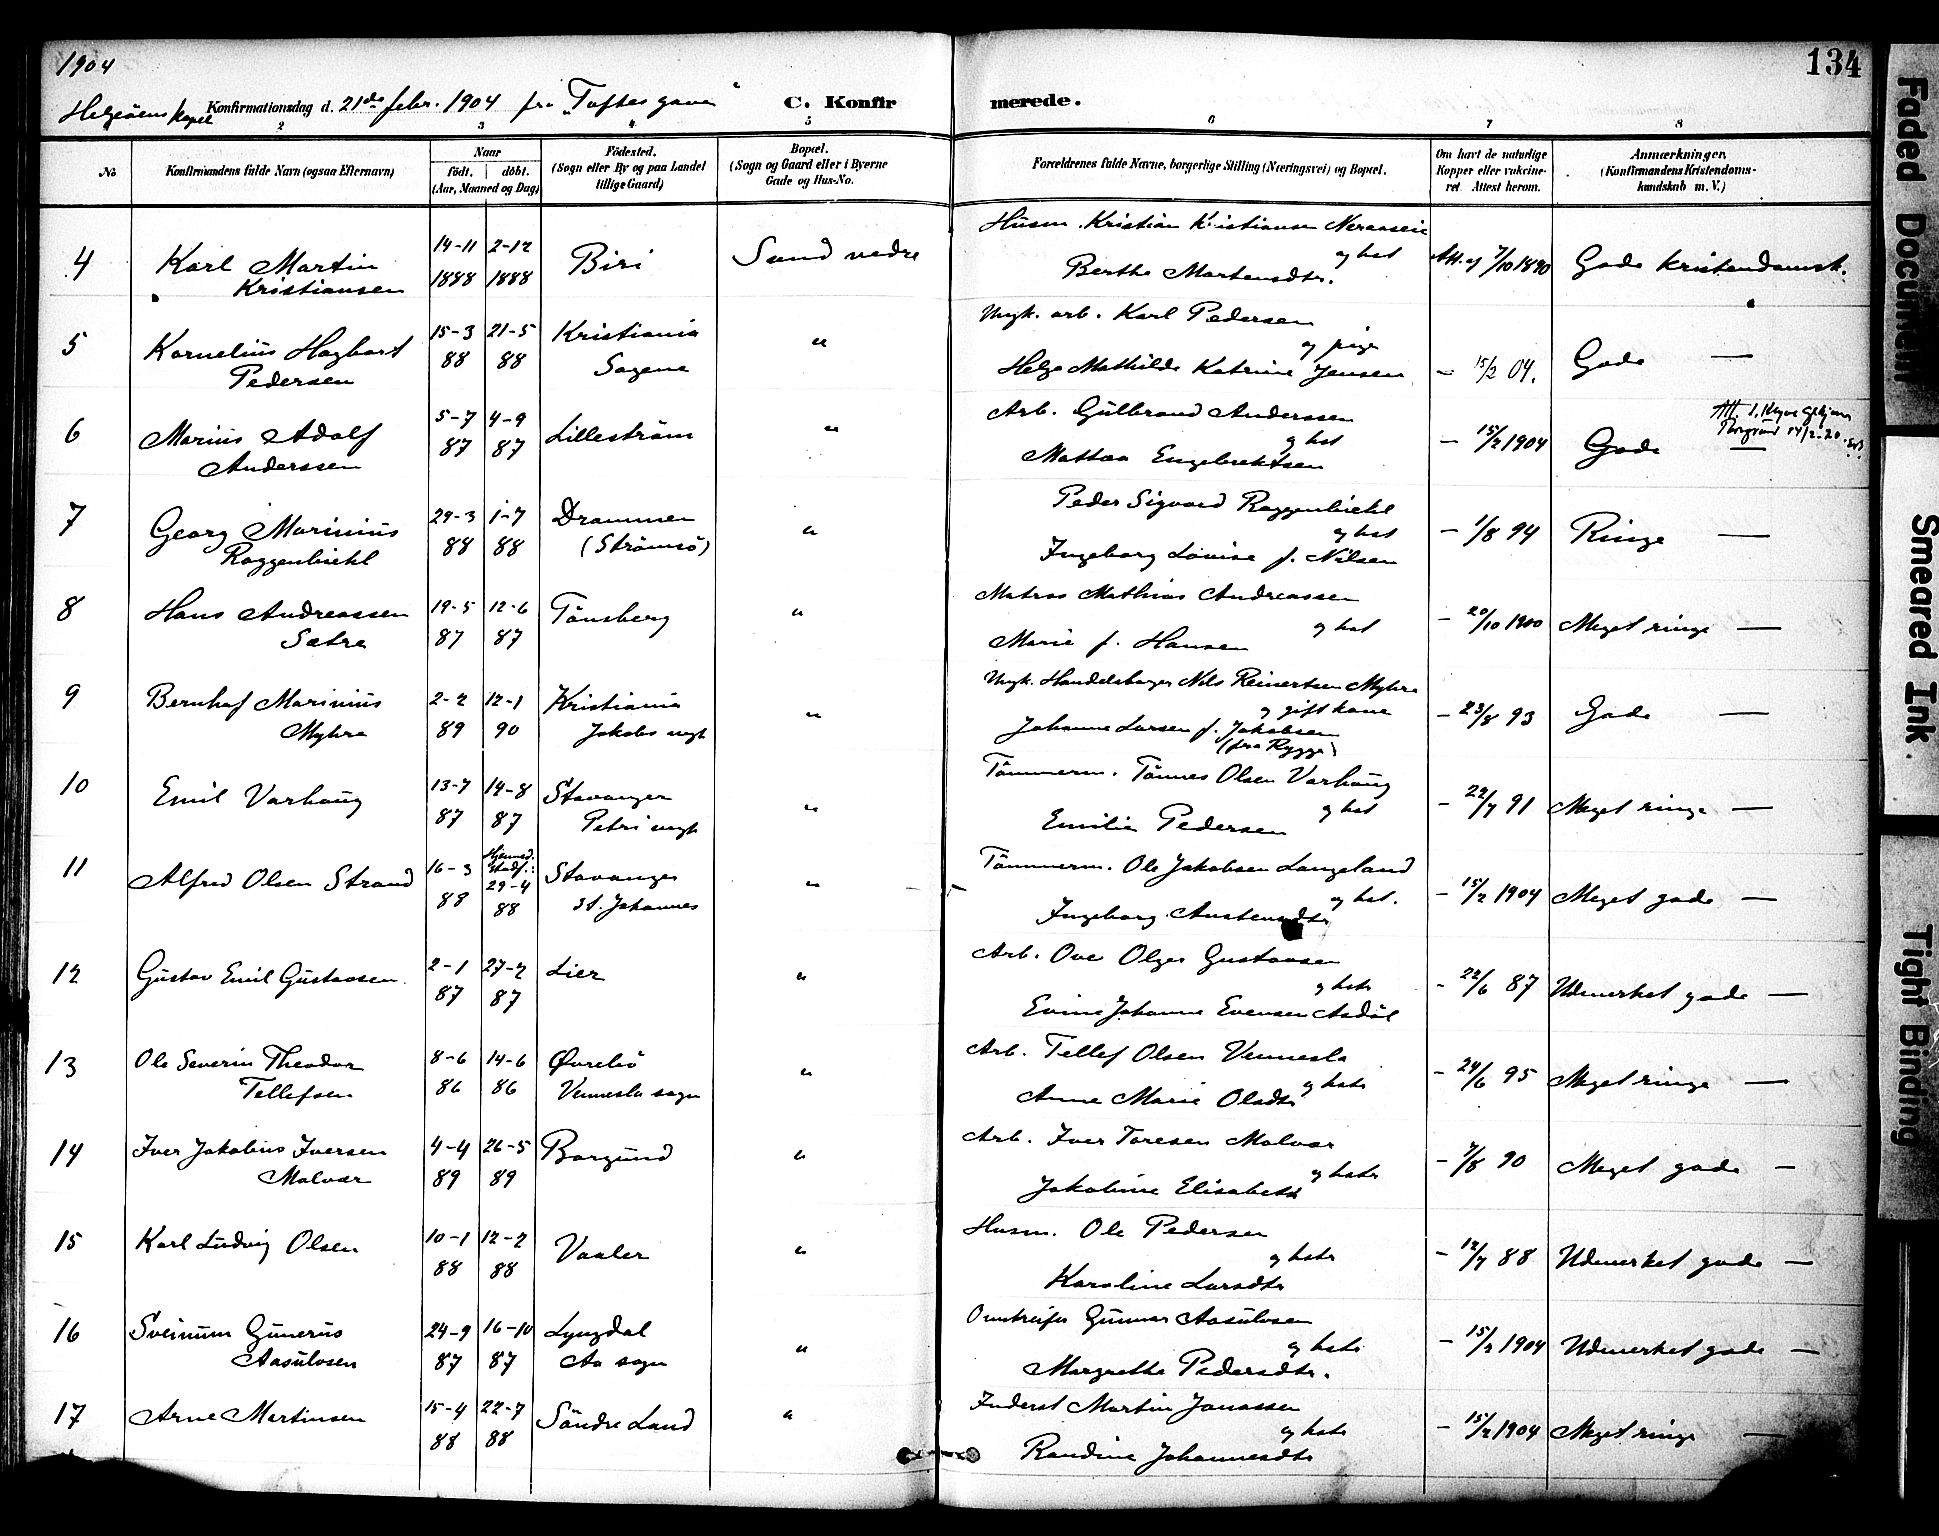 1904
134
Helgeöens Kapel
Konfirmationsdag d. 21de febr. 1904 fra "Toftes gave"
C. Konfirmerede.
2 3 4 5 6 7 8
No
Konfirmandens fulde Navn (ogsaa Efternavn)
Naar
födt. döbt.
(Aar, Maaned og Dag)
Födested.
(Sogn eller By og paa Landet
tillige Gaard)
Bopæl.
(Sogn og Gaard eller i Byerne
Gade og Hus-No.
Forældrenes fulde Navne, borgerlige Stilling (Næringsvei) og Bopæl.
Om havt de naturlige
Kopper eller vakcine-
ret Attest herom.
Anmærkninger.
(Konfirmandens Kristendoms-
kundskab m. V.)
4 Karl Martin Kristiansen 14-11 1888 2-12 1888 Biri Sund nedre
Husm. Kristian Kristiansen og hst Berthe Martensdtr. Att. af 7/10 1890 Gode kristendomsk.
5 Kornelius Hagbart Pedersen 15-3 88 21-5 88 Kristiania Sagene "
Ungk. arb. Karl Pedersen og pige Helga Mathilde Katrine Jensen - 15/2 04. Gode —
6 Marius Adolf Anderssen 5-7 87 4-9 87 Lilleström "
Arb. Gulbrand Anderssen og hst Mattea Engebrektsen - 15/2 1904 Gode —
7 Georg Marinius Roggenbiehl 29-3 88 1-7 88 Drammen (Strömsö) "
Peder Sigvard Roggenbiehl og hst Ingeborg Lovise f. Nilsen - 1/8 94 Ringe —
8 Hans Andreassen Sætre 19-5 87 12-6 87 Tönsberg "
Matros Mathias Andreassen og hst Marie f. Hansen - 20/10 1900 Meget ringe —
9 Bernhof Marinius Myhre 2-2 89 12-1 90 Kristiania Jakobs mgh "
Ungk. Handelsborger Nils Reinertsen Myhre og gift kone Johanne Larsen f. Jakobsen (fra Rygge) - 23/8 93 Gode —
10 Emil Varhaug 13-7 87 14-8 87 Stavanger Petri mgh "
Tömmerm. Tönnes Olsen Varhaug og hst Emilie Pedersen - 22/7 91 Meget ringe —
11 Alfred Olsen Strand 16-3 88 Hjemmed. stadf.: 29-4 88 Stavanger St. Johannes "
Tömmerm. Ole Jakobsen Langeland og hst. Ingeborg Austensdtr - 15/2 1904 Meget gode —
12 Gustav Emil Gustavsen 2-1 87 27-2 87 Lier "
Arb. Ove Olger Gustavsen og hstr Evine Johanne Evensen Aadöl - 22/6 87 Udmerket gode —
13 Ole Severin Theodor Tellefsen 8-6 86 14-6 86 Övrebö Vennesla sogn "
Arb. Tellef Olsen Vennesla og hstr Anne Marie Olsdtr - 24/6 95 Meget ringe —
14 Iver Jakobus Iversen Molvær 4-4 89 26-5 89 Borgund "
Arb. Iver Toresen Molvær og hstr Jakobine Elisabeth - 7/8 90 Meget gode —
15 Karl Ludvig Olsen 10-1 88 12-2 88 Vaaler "
Husm. Ole Pedersen og hstr Karoline Larsdtr - 12/7 88 Udmerket gode —
16 Sveinum Gunerius Aasulvsen 24-9 87 16-10 87 Lyngdal Aa sogn "
Omstreifer Gunnar Aasulvsen og hstr Margrethe Pedersdtr. - 15/2 1904 Udmerket gode —
17 Arne Martinsen 15-4 88 22-7 88 Söndre Land "
Inderst Martin Jonassen og hstr Randine Johannesdtr - 15/2 1904 Meget ringe —
Faded Document
Smeared Ink.
Tight Binding